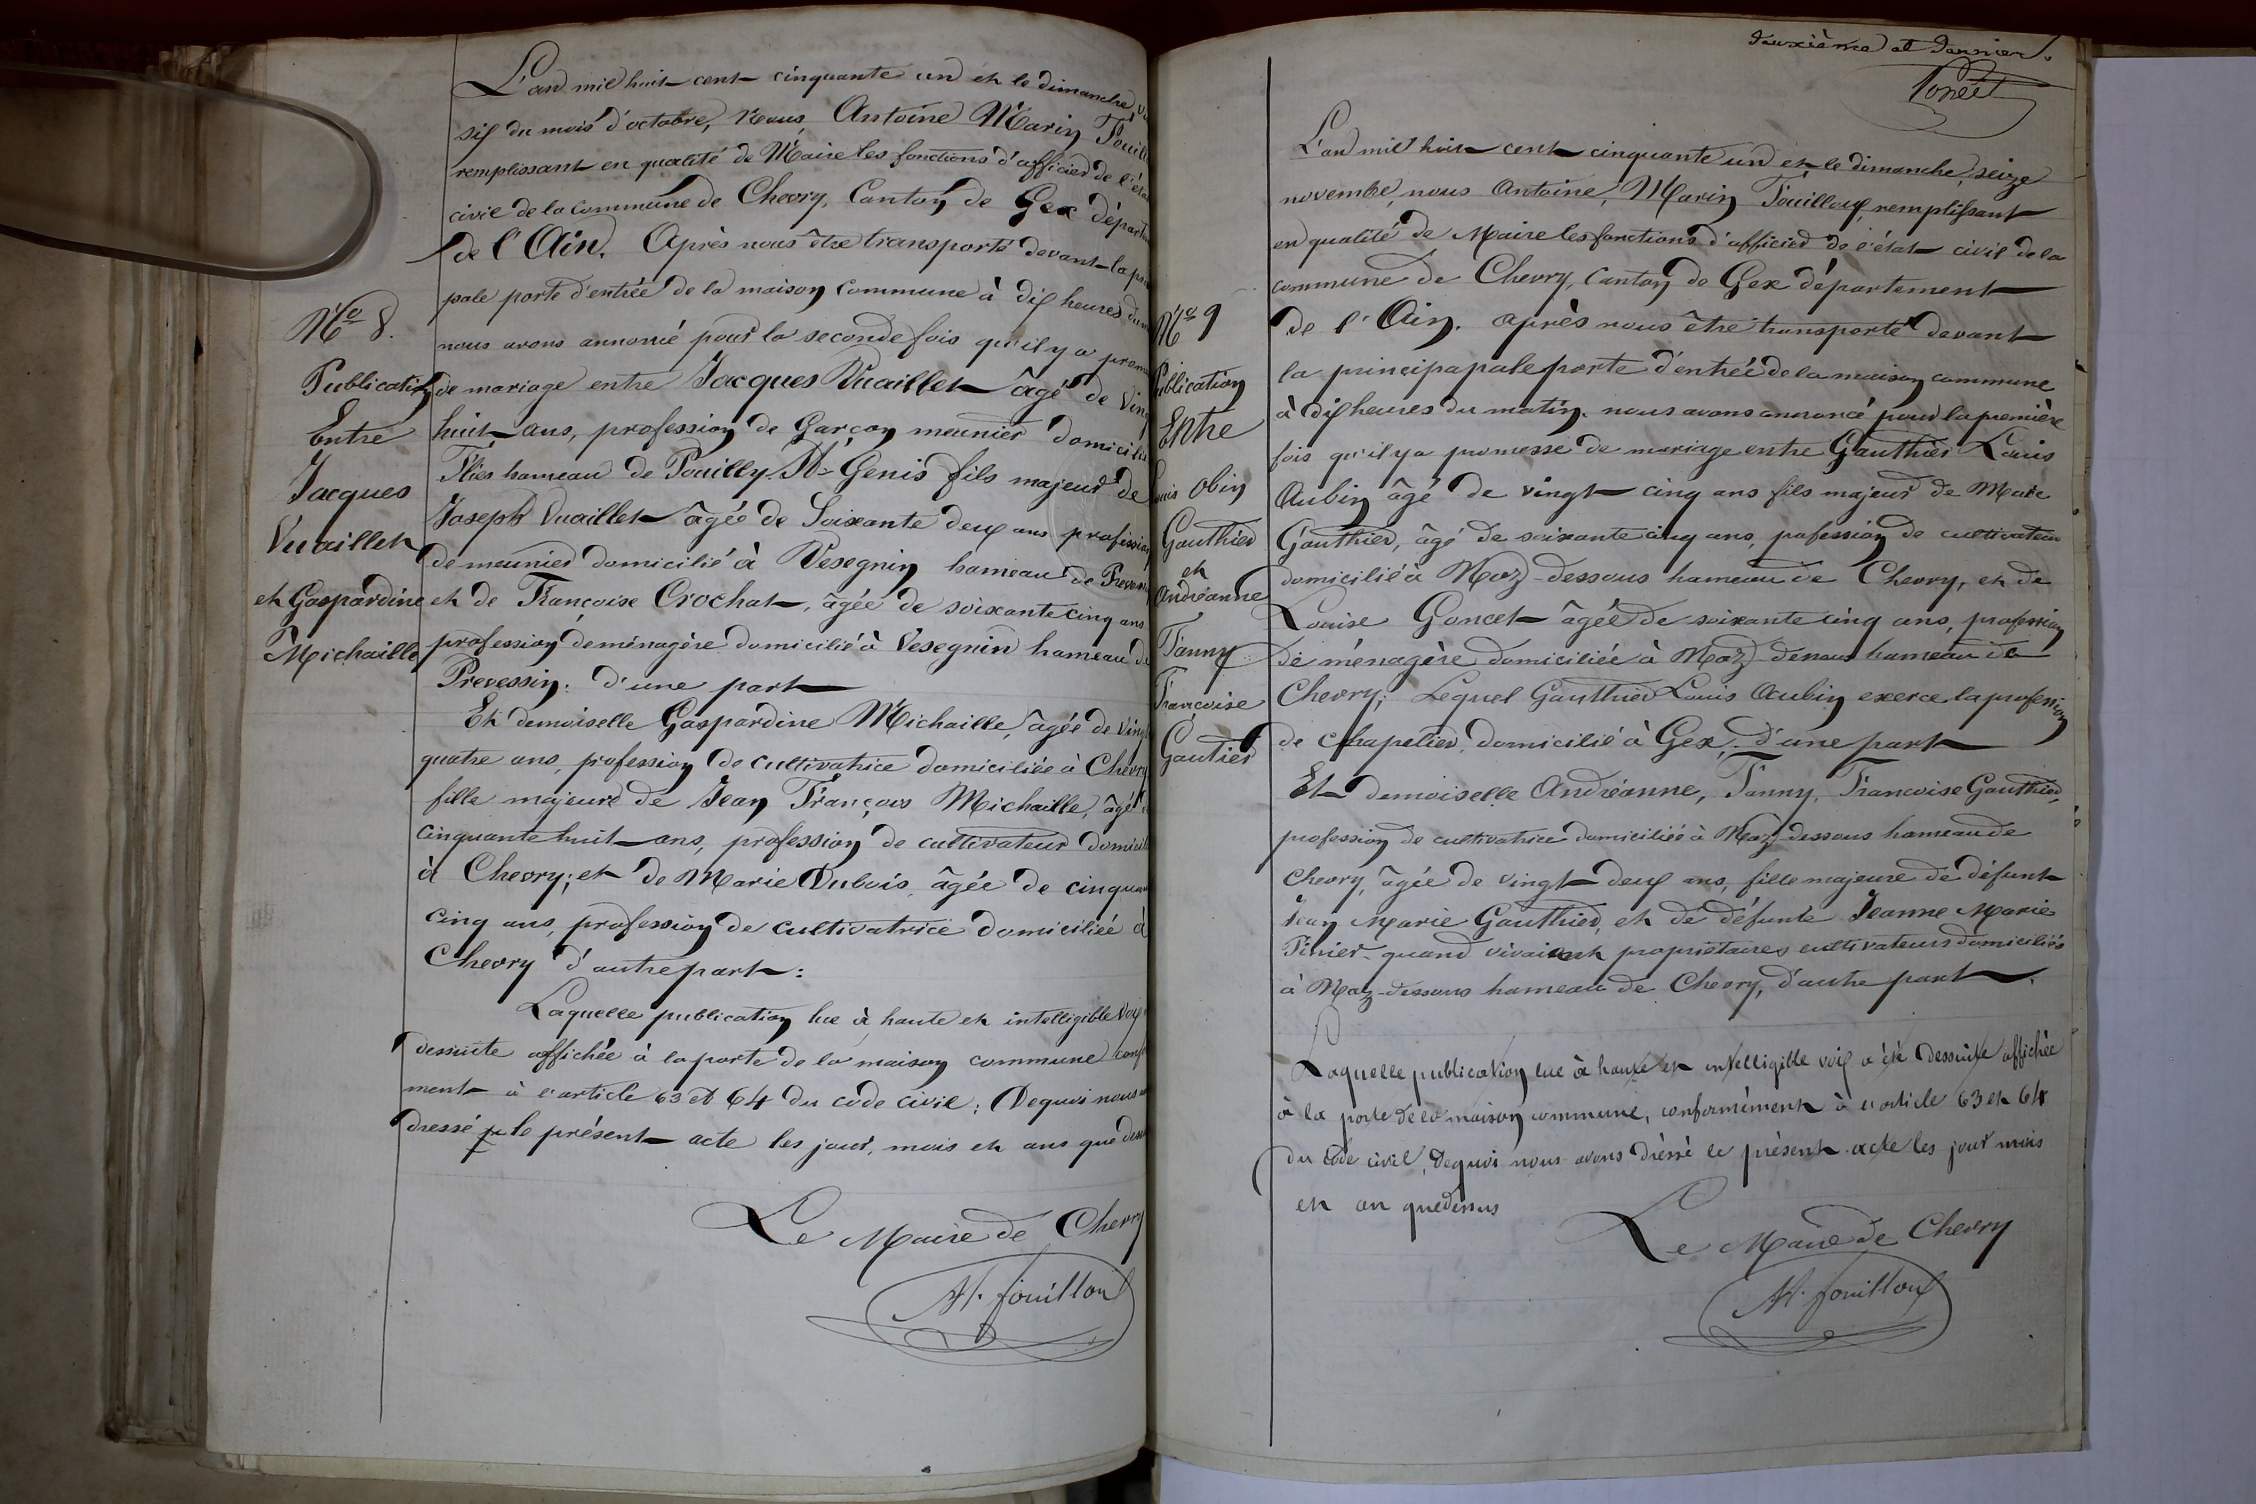 L'an mil huit cent cinquante un et le dimanche
six du mois d'octobre, Nous, Antoine Marin Fouill
remplissant en qualité de Maire les fonctions d'officier de l'état
civil de la commune de Chevry, Canton de Gex départ
de l'Ain. Après nous être transporté devant la
pale porte d'entrée de la maison commune à dix heures du
nous avons annoncé pour la seconde fois qu'il y a prom
de mariage entre Jacques Vuaillet âgé de Ving
huit ans, profession de Garçon meunier domicilié
Flies hameau de Pouilly St Genis fils majeur de
Joseph Vuaillet âgée de Soixante deux ans profession
de meunier domicilié à Vesegnin hameau de Preves
et de Françoise Crochat, âgée de soixante cinq ans
profession de ménagère domicilié à Vesegnin hameau de
Prevessin. d'une part
Et demoiselle Gaspardine Michaille, âgée de Ving
quatre ans, profession de cultivatrice domiciliée à Chevry
fille majeure de Jean François Michaille, âgé
cinquante huit ans, profession de cultivateur domicil
à Chevry; et de Marie Dubois âgée de cinquan
cinq ans, profession de cultivatrice domiciliée à
Chevry d'autre part:
Laquelle publication lue à haute et intelligible Voix
dessuite affichée à la porte de la maison commune conf
ment à l'article 63 et 64 du code civil; Dequoi nous
dressé le présent acte les jour, mois et ans que dess
Le Maire de Chevry
M. fouilloux
No 8.
Publication
Entre
Jacques
Vuaillet
et Gaspardine
Michaille
deuxième et dernier.
Poncet
L'an mil huit cent cinquante un et le dimanche, seize
novembre, nous Antoine, Marin Fouilloux, remplissant
en qualité de Maire les fonctions d'officier de l'état civil de la
commune de Chevry, canton de Gex département
de l'Ain. après nous être transporté devant
la principapale porte d'entrée de la maison commune
à dix heures du matin. nous avons annoncé pour la première
fois qu'il y a promesse de mariage entre Gauthier Louis
Aubin âgé de vingt cinq ans fils majeur de Marc
Gauthier, âgé de soixante cinq ans, pofession de cultivateur
domicilié à Naz-dessous hameau de Chevry, et de
Louise Goncet âgée de soixante cinq ans, profession
de ménagère domiciliée à Naz-dessous hameau de
Chevry; Lequel Gauthier Louis Aubin exerce la profession
de chapelier, domicilié à Gex, d'une part
Et demoiselle Andréanne, Fanny, Francoise Gauthier,
profession de cultivatrice domiciliée à Naz-dessous hameau de
Chevry, âgée de vingt deux ans, fille majeure de défunt
Jean Marie Gauthier, et de défunte Jeanne Marie
quand vivaient propriétaires cultivateurs domiciliés
à Naz-dessous hameau de Chevry, d'autre part.
Laquelle publication lue à haute et intelligible voix a été dessuite affichée
à la porte de la maison commune, conformément à l'article 63 et 64
du code civil, Dequoi nous avons dréssé le présent acte les jour mois
et an quedessus
Le Maire de Chevry
M. fouilloux
No 9
Publication
Entre
Louis Obin
Gauthier
et
Andréanne
Fanny
Françoise
Gautier